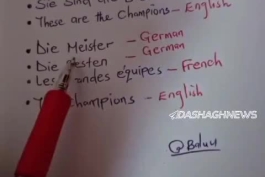 • Sie Sind
• These are the Champions – English
• Die Meister – German
• Die Besten – German
• Les grandes équipes – French
• Champions – English
@DASHAGHNEWS